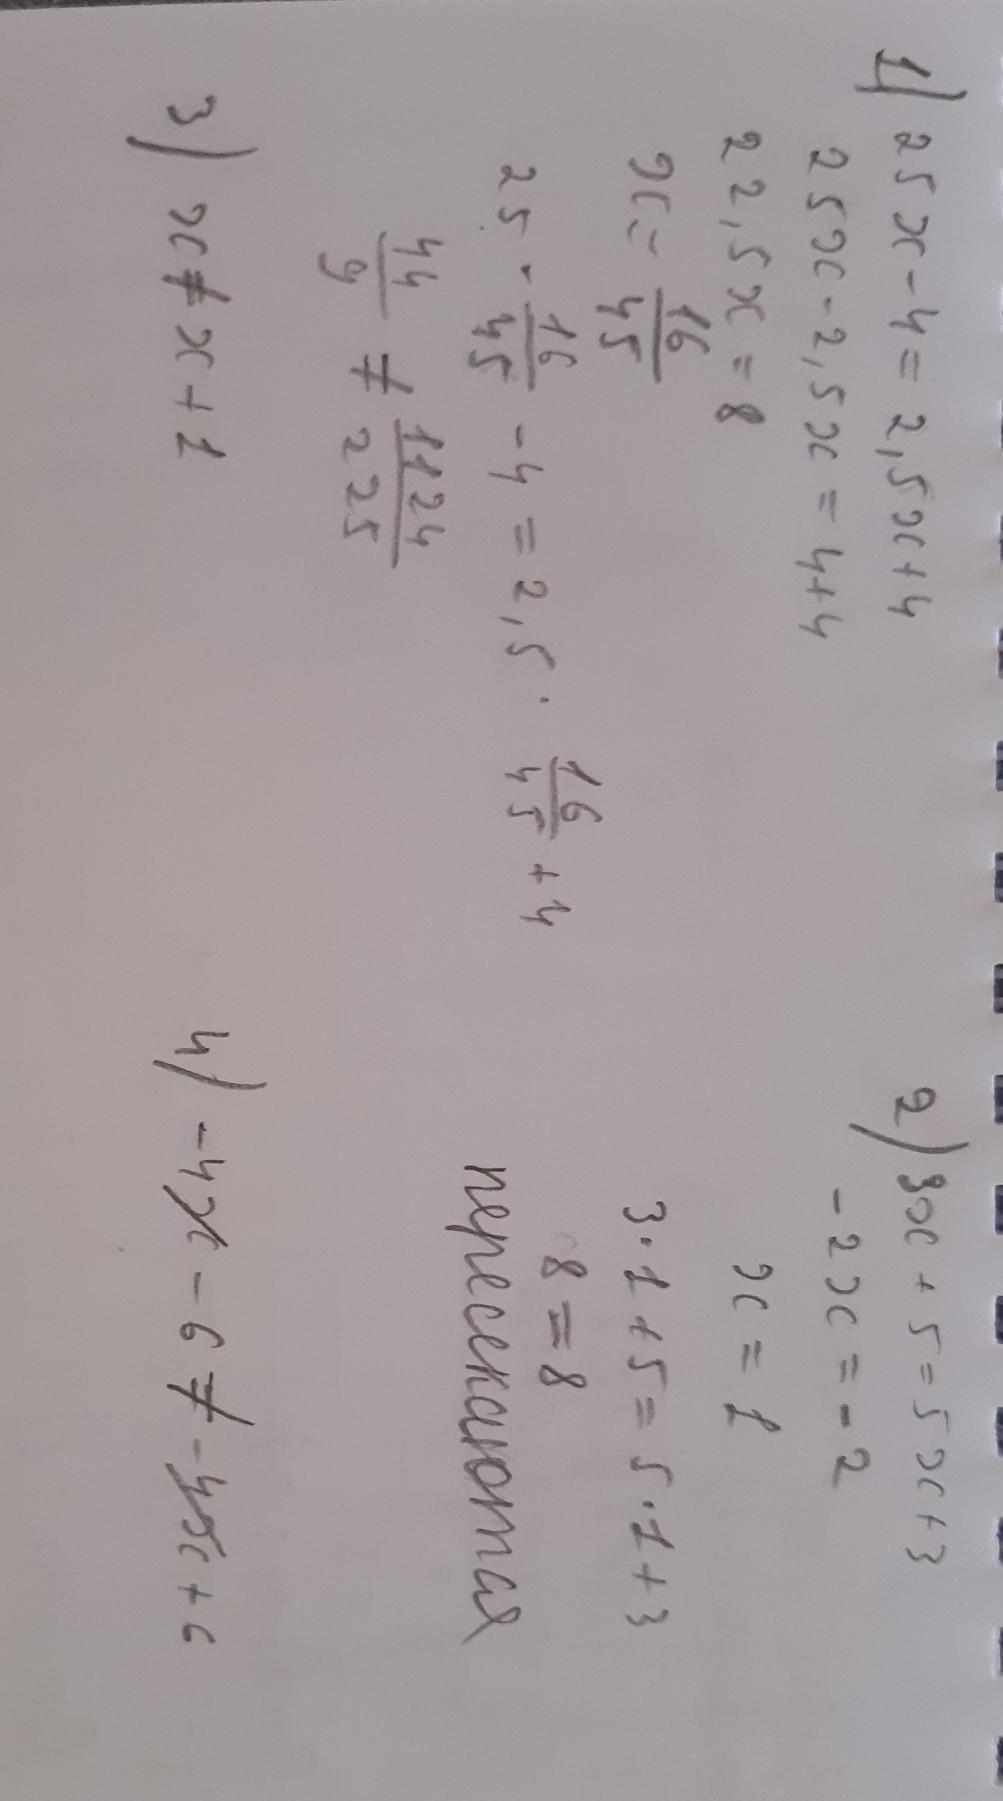 1) 25x-4=2,5x+4
25x-2,5x=4+4
22,5x=8
x=16/45
25·16/45-4=2,5·16/45+4
44/9≠1124/225
2) 3x+5=5x+3
-2x=-2
x=1
3·1+5=5·1+3
8=8
пересекаются
3) x≠x+1
4) -4x-6≠-4x+6